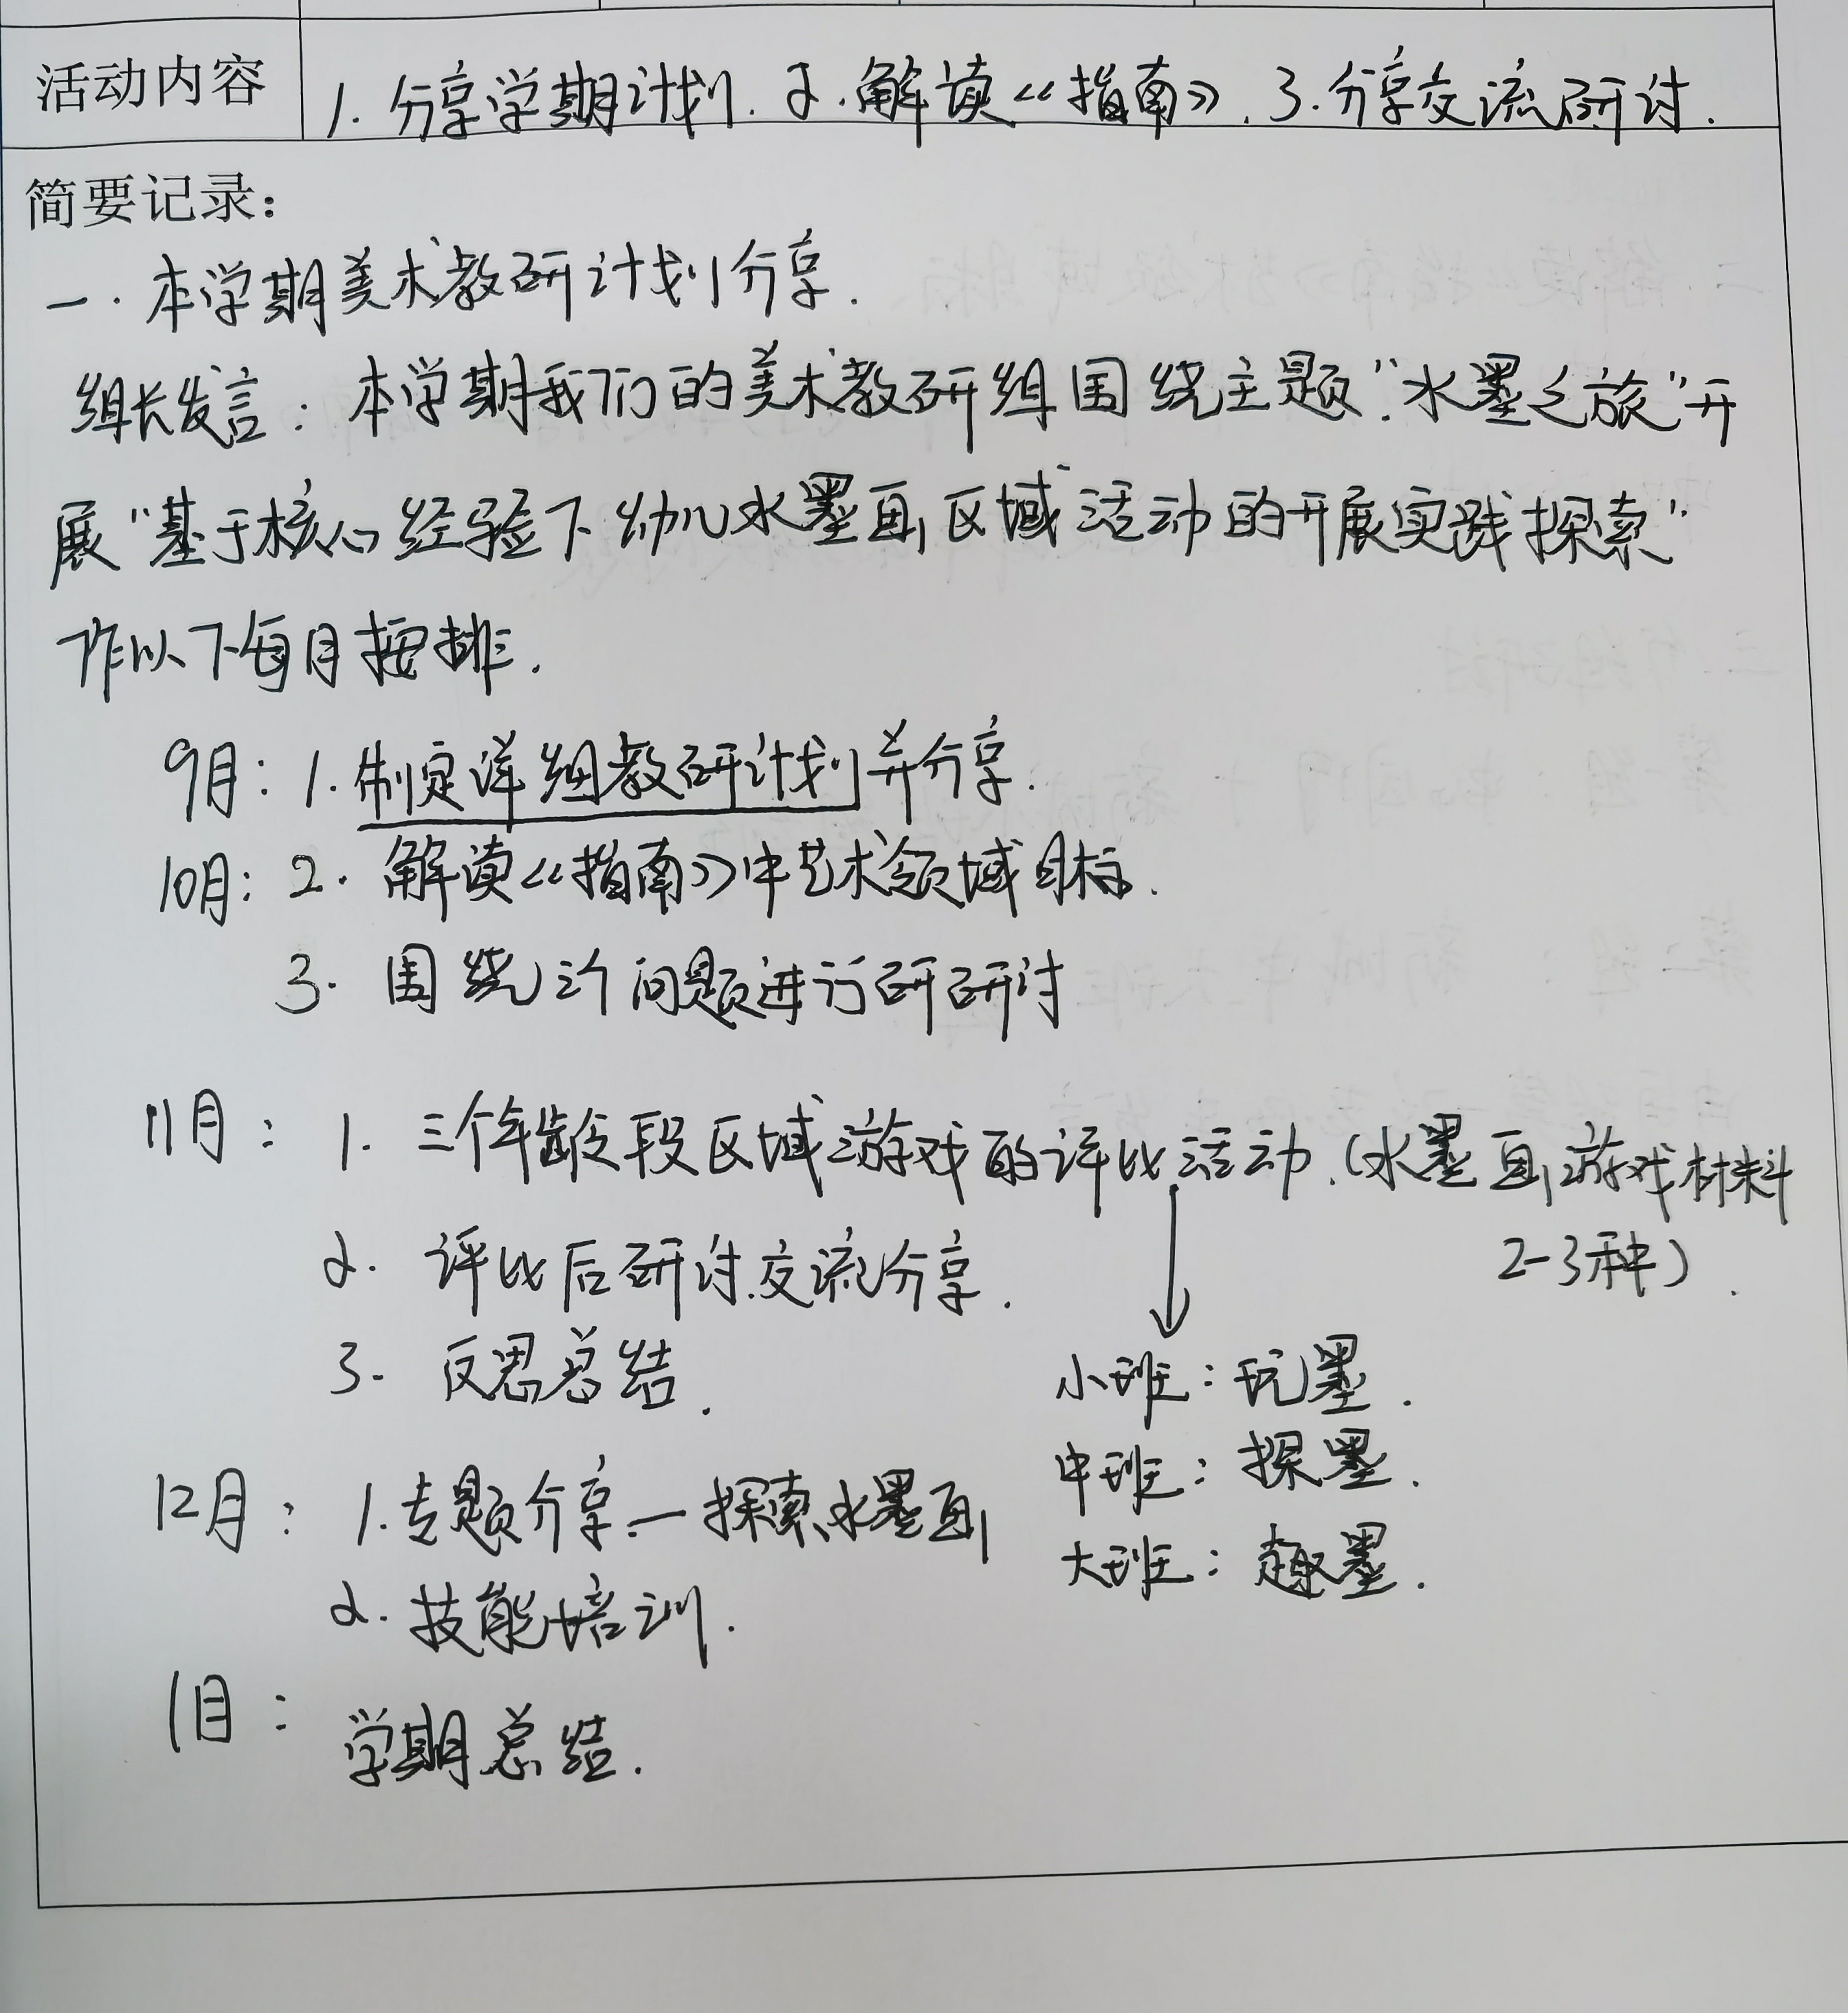 活动内容 1. 分享学期计划. 2. 解读《指南》. 3. 分享交流研讨.
简要记录:
一. 本学期美术教研计划分享.
组长发言: 本学期我们的美术教研组围绕主题"水墨之旅"开
展"基于核心经验下幼儿水墨画区域活动的开展实践探索"
作以下每月按排.
9月: 1. 制定 组教研计划并分享.
10月: 2. 解读《指南》中艺术领域目标.
3. 围绕 问题进行研研讨
11月: 1. 三个年龄段区域游戏的评比活动. (水墨画游戏材料
2-3种).
2. 评比后研讨.交流分享.
3. 反思总结.
小班: 玩墨.
中班: 探墨.
大班: 趣墨.
12月: 1. 专题分享—探索水墨画
2. 技能培训.
1月: 学期总结.